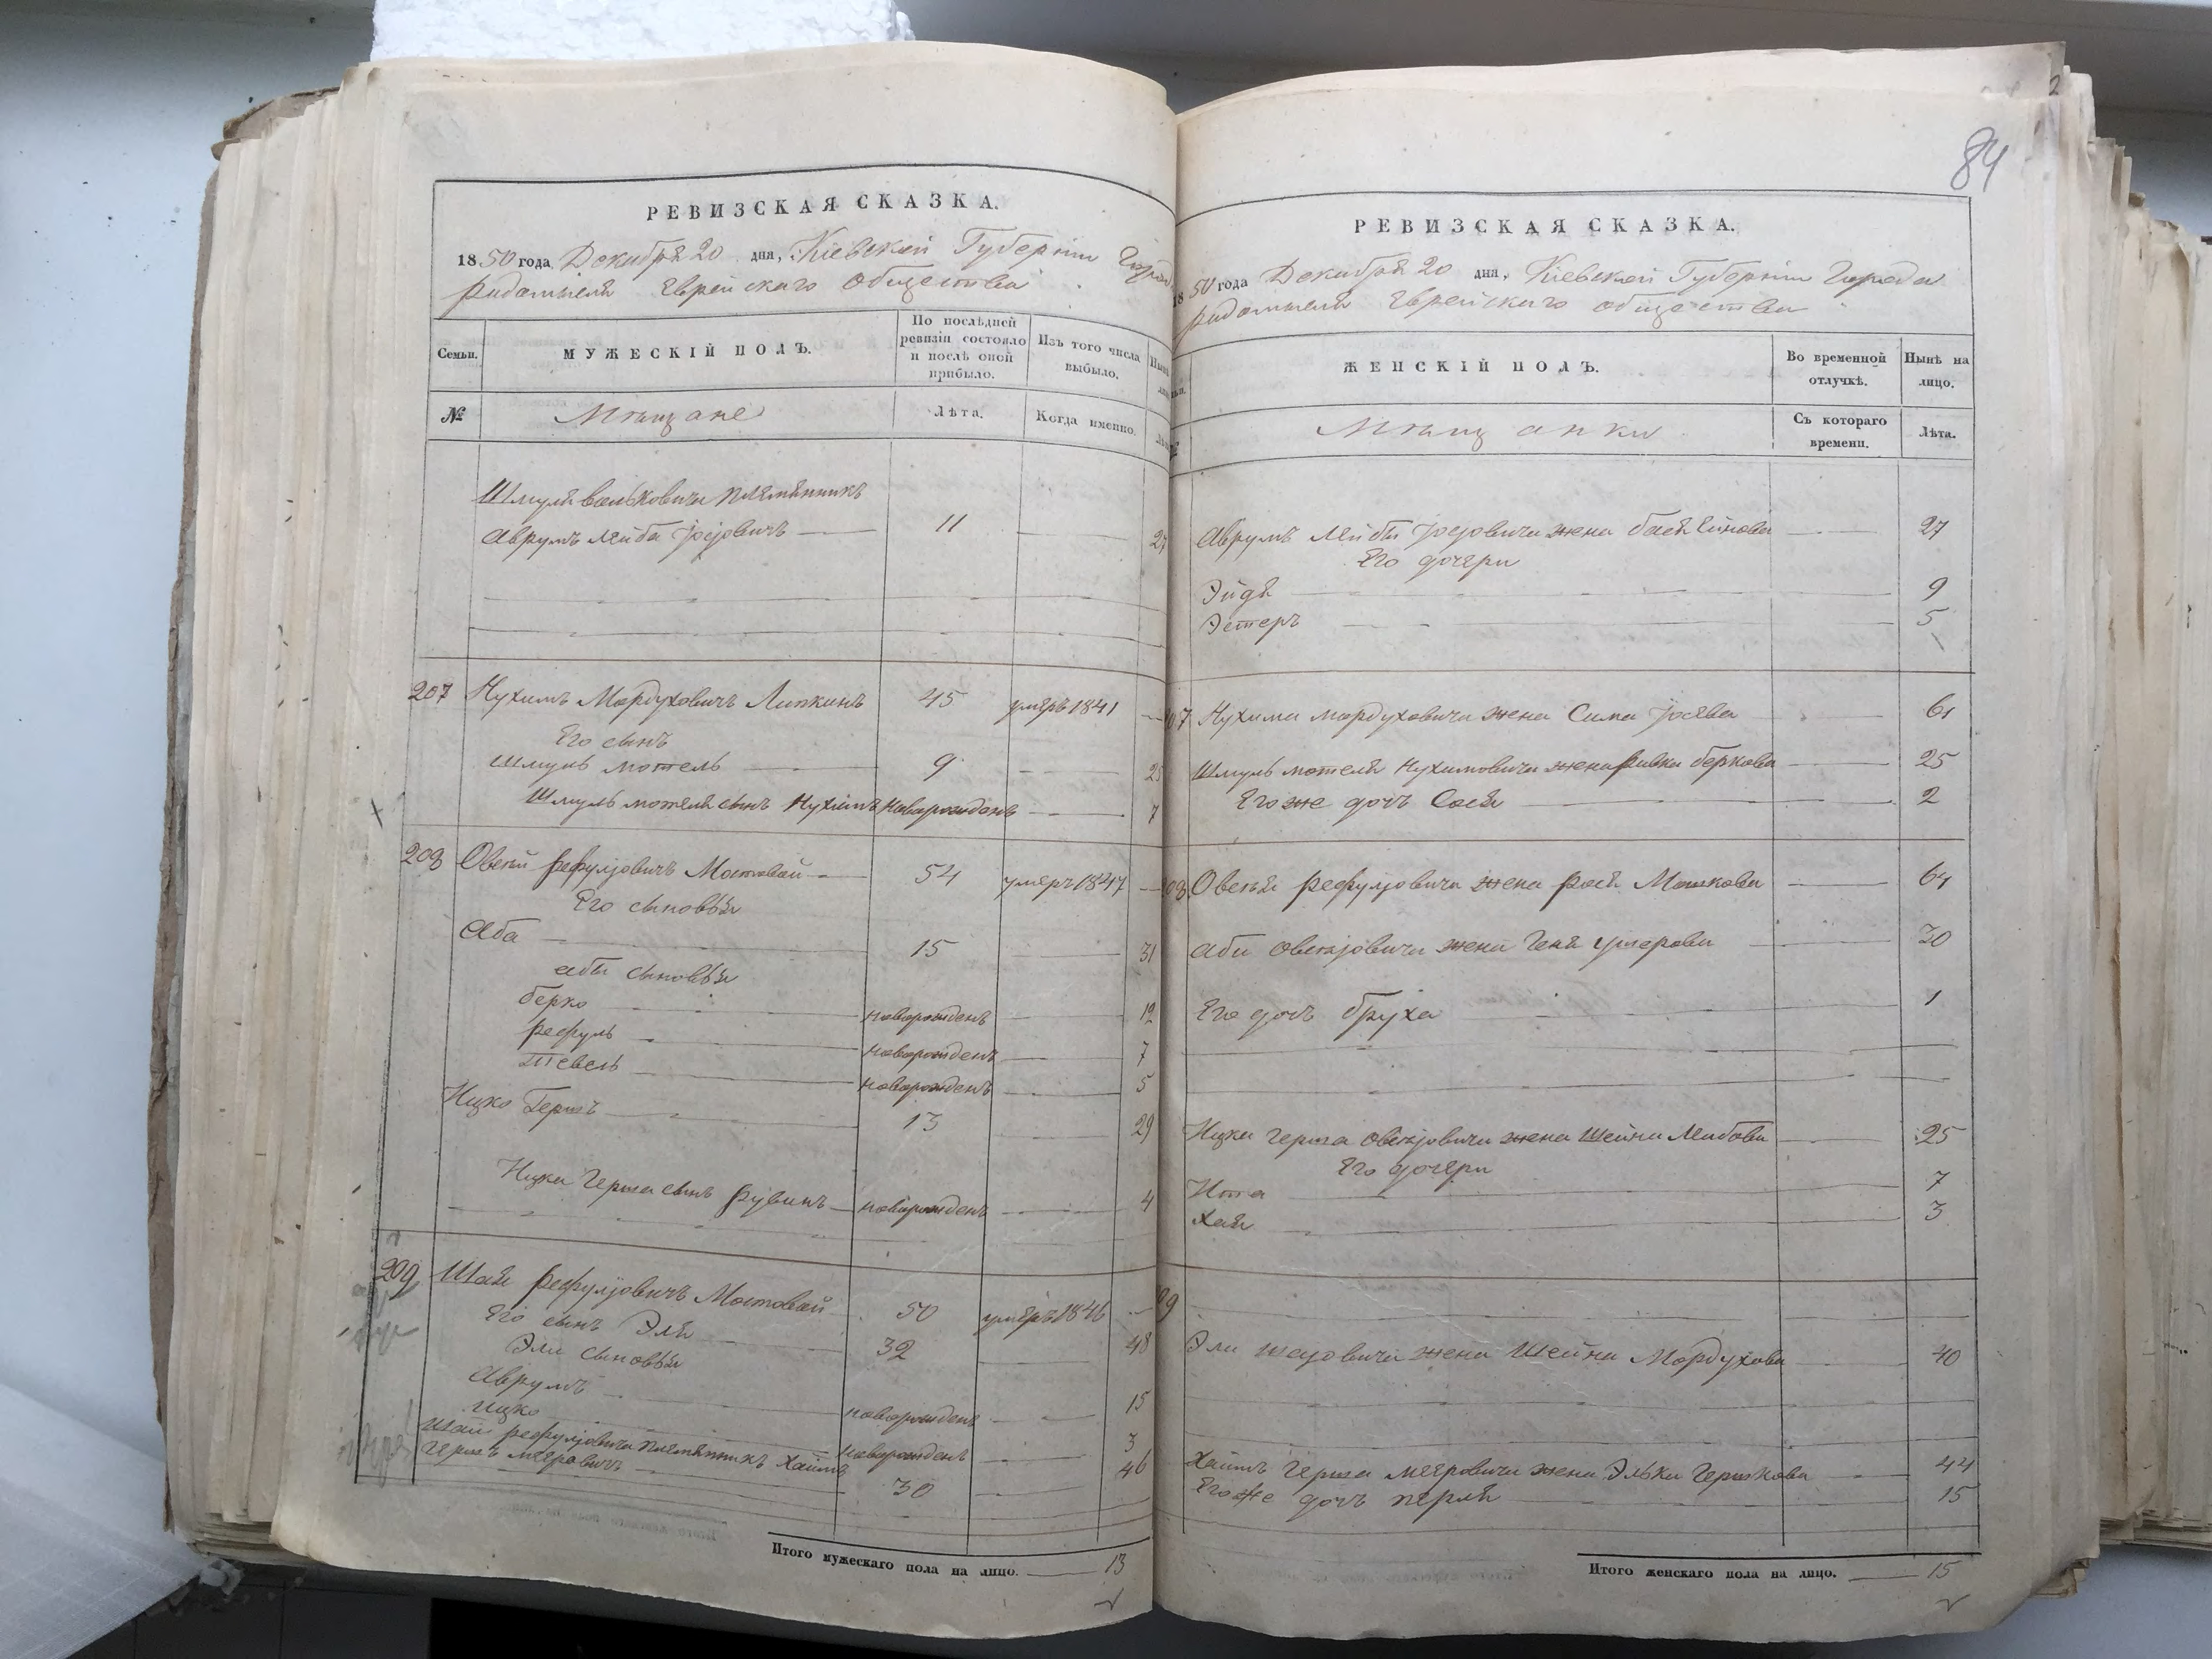 РЕВИЗСКАЯ СКАЗКА.
1850 года Декабря 20 дня, Кіевской Губерніи Города
Радомысля Еврейскаго Общества
Семьи.
МУЖЕСКІЙ ПОЛЪ.
По послѣдней ревизіи состояло и послѣ оной прибыло.
Изъ того числа выбыло.
№
Мѣщане
Лѣта.
Когда именно.
Шмуля Вольковича племянникъ
Аврумъ Лейба Іосіовичъ 11
207 Нухимъ Мордуховичъ Липкинъ 45 умеръ 1841
Его сынъ
Шмуль Мотель 9 25
Шмуль Мотеля сынъ Нухимъ новорожденъ 7
208 Овсей Рефулövичъ Мостовай 54 умеръ 1847
Его сыновья
Аба 15 31
Абы сыновья
Берко новорожденъ 12
Рефуль новорожденъ 7
Тевель новорожденъ 5
Ицко Гершъ 13 29
Ицка Герша сынъ Рувинъ новорожденъ 4
209 Шая Рефуліовичъ Мостовай 50 умеръ 1846
Его сынъ Эля 32 48
Эли сыновья
Аврумъ новорожденъ 15
Ицко новорожденъ 3
Шаи Рефуліовича племянникъ Хаимъ
Гершъ Мееровичъ 30 46
Итого мужескаго пола на лицо. 13
84
РЕВИЗСКАЯ СКАЗКА.
1850 года Декабря 20 дня, Кіевской Губерніи Города
Радомысля Еврейскаго общества
ЖЕНСКІЙ ПОЛЪ.
Во временной отлучкѣ.
Нынѣ на лицо.
Мѣщанки
Съ котораго времени.
Лѣта.
Аврумъ Лейбы Іосіовича жена Бася 27
Его дочери
Эйдя 9
Эстеръ 5
Нухима Мордуховича жена Сима Іосева 61
Шмуль Мотеля Нухимовича жена Ривка Беркова 25
Его же дочь Сося 2
Овсея Рефуліовича жена Рося Мошкова 64
Абы Овсеіовича жена Геня Ушерова 30
Его дочь Бруха 1
Ицка Герша Овсеіовича жена Шейна Лейбова 25
Его дочери
Ита 7
Хая 3
Эли Шаіовича жена Шейна Мордухова 40
Хаимъ Герша Мееровича жена Элька Гершкова 44
Его же дочь Перля 15
Итого женскаго пола на лицо. 15